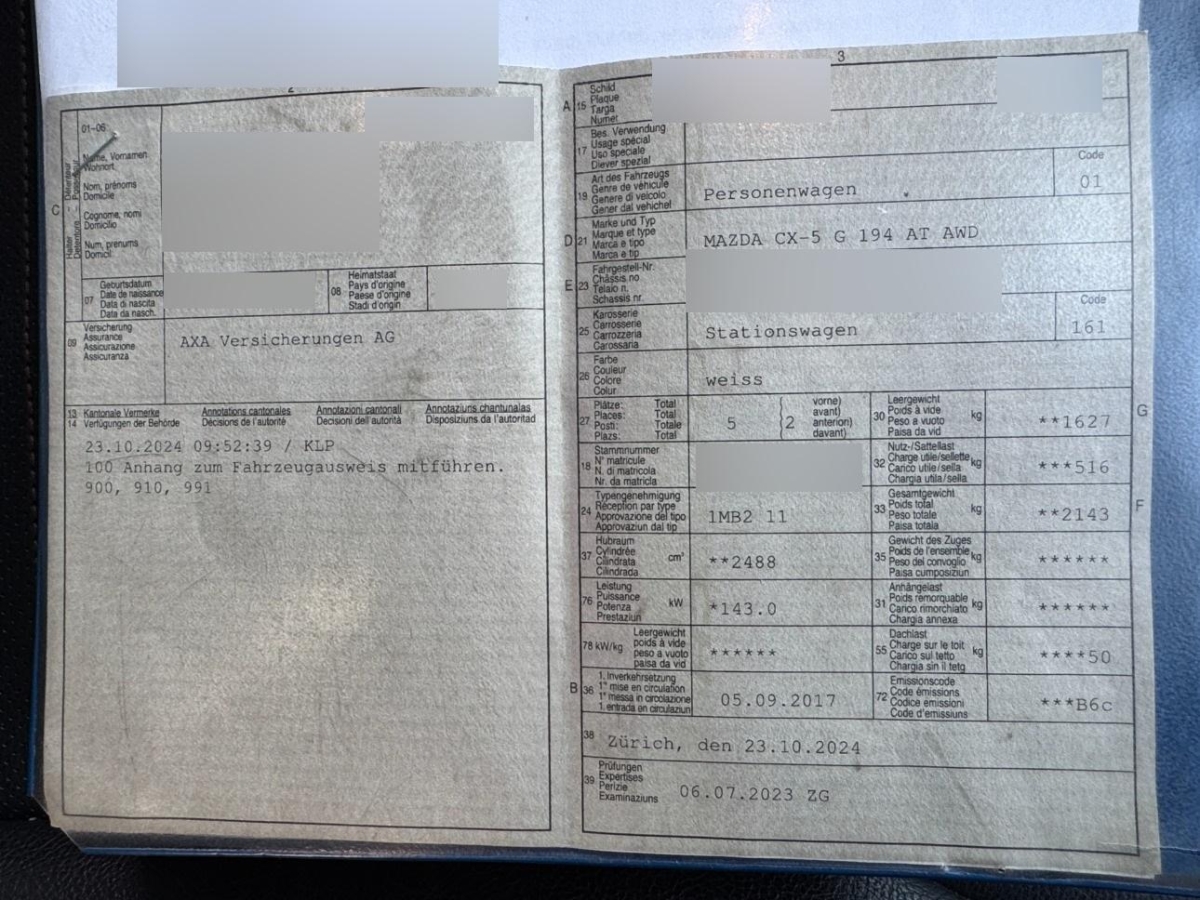 2
01-06
C
Halter
Détenteur
Name, Vornamen
Wohnort
Nom, prénoms
Domicile
Cognome, nomi
Domicilio
Num, prenums
Domicil
07
Geburtsdatum
Date de naissance
Data di nascita
Data da nasch.
08
Heimatstaat
Pays d'origine
Paese d'origine
Stadi d'origin
09
Versicherung
Assurance
Assicurazione
Assicuranza
AXA Versicherungen AG
13 Kantonale Vermerke Annotations cantonales Annotazioni cantonali Annotaziuns chantunalas
14 Verfügungen der Behörde Décisions de l'autorité Decisioni dell'autorità Disposiziuns da l'autoritad
23.10.2024 09:52:39 / KLP
100 Anhang zum Fahrzeugausweis mitführen.
900, 910, 991
3
A 15
Schild
Plaque
Targa
Numer
17
Bes. Verwendung
Usage spécial
Uso speciale
Diever spezial
19
Art des Fahrzeugs
Genre de véhicule
Genere di veicolo
Gener dal vehichel
Personenwagen
Code
01
D 21
Marke und Typ
Marque et type
Marca e tipo
Marca e tip
MAZDA CX-5 G 194 AT AWD
E 23
Fahrgestell-Nr.
Châssis no
Telaio n.
Schassis nr.
25
Karosserie
Carrosserie
Carrozzeria
Carossaria
Stationswagen
Code
161
26
Farbe
Couleur
Colore
Colur
weiss
27
Plätze: Total
Places: Total
Posti: Totale
Plazs: Total
5
2
vorne)
avant)
anteriori)
davant)
30
Leergewicht
Poids à vide
Peso a vuoto
Paisa da vid
kg
**1627
G
18
Stammnummer
N° matricule
N. di matricola
Nr. da matricla
32
Nutz-/Sattellast
Charge utile/sellette
Carico utile/sella
Chargia utila/sella
kg
***516
24
Typengenehmigung
Réception par type
Approvazione del tipo
Approvaziun dal tip
1MB2 11
33
Gesamtgewicht
Poids total
Peso totale
Paisa totala
kg
**2143
F
37
Hubraum
Cylindrée
Cilindrata
Cilindrada
cm³
**2488
35
Gewicht des Zuges
Poids de l'ensemble
Peso del convoglio
Paisa cumposiziun
kg
******
76
Leistung
Puissance
Potenza
Prestaziun
kW
*143.0
31
Anhängelast
Poids remorquable
Carico rimorchiato
Chargia annexa
kg
******
78 kW/kg
Leergewicht
poids à vide
peso a vuoto
paisa da vid
******
55
Dachlast
Charge sur le toit
Carico sul tetto
Chargia sin il tetg
kg
****50
B 36
1. Inverkehrsetzung
1re mise en circulation
1a messa in circolazione
1. entrada en circulaziun
05.09.2017
72
Emissionscode
Code émissions
Codice emissioni
Code d'emissiuns
***B6c
38
Zürich, den 23.10.2024
39
Prüfungen
Expertises
Perizie
Examinaziuns
06.07.2023 ZG